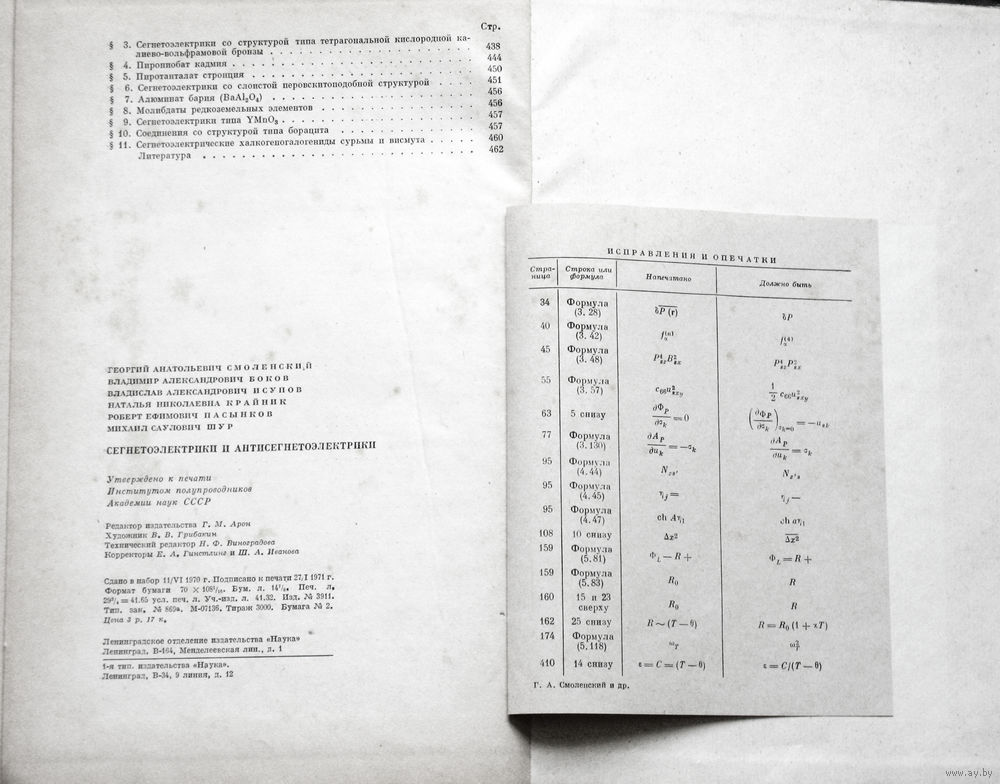 Стр.
§ 3. Сегнетоэлектрики со структурой типа тетрагональной кислородной ка-
лиево-вольфрамовой бронзы . . . . . . . . . . 438
§ 4. Пирониобат кадмия . . . . . . . . . . 444
§ 5. Пиротанталат стронция . . . . . . . . . . 450
§ 6. Сегнетоэлектрики со слоистой перовскитоподобной структурой . . . . 451
§ 7. Алюминат бария (BaAl₂O₄) . . . . . . . . . . 456
§ 8. Молибдаты редкоземельных элементов . . . . . . . . . . 456
§ 9. Сегнетоэлектрики типа YMnO₃ . . . . . . . . . . 457
§ 10. Соединения со структурой типа борацита . . . . . . . . . . 457
§ 11. Сегнетоэлектрические халкогеногалогениды сурьмы и висмута . . . . . 460
Литература . . . . . . . . . . 462
ГЕОРГИЙ АНАТОЛЬЕВИЧ СМОЛЕНСКИЙ
ВЛАДИМИР АЛЕКСАНДРОВИЧ БОКОВ
ВЛАДИСЛАВ АЛЕКСАНДРОВИЧ ИСУПОВ
НАТАЛЬЯ НИКОЛАЕВНА КРАЙНИК
РОБЕРТ ЕФИМОВИЧ ПАСЫНКОВ
МИХАИЛ САУЛОВИЧ ШУР
СЕГНЕТОЭЛЕКТРИКИ И АНТИСЕГНЕТОЭЛЕКТРИКИ
Утверждено к печати
Институтом полупроводников
Академии наук СССР
Редактор издательства Г. М. Арон
Художник В. В. Грибакин
Технический редактор Н. Ф. Виноградова
Корректоры Е. А. Гинстлинг и Ш. А. Иванова
Сдано в набор 11/VI 1970 г. Подписано к печати 27/I 1971 г.
Формат бумаги 70 × 108¹/₁₆. Бум. л. 14⁷/₈. Печ. л.
29³/₄ = 41.65 усл. печ. л. Уч.-изд. л. 41.32. Изд. № 3911.
Тип. зак. № 869а. М-07136. Тираж 3000. Бумага № 2.
Цена 3 р. 17 к.
Ленинградское отделение издательства «Наука»
Ленинград, В-164, Менделеевская лин., д. 1
1-я тип. издательства «Наука».
Ленинград, В-34, 9 линия, д. 12
ИСПРАВЛЕНИЯ И ОПЕЧАТКИ
Стра- Строка или Напечатано Должно быть
ница формула
34 Формула (3. 28) δP (r) δP
40 Формула (3. 42)
45 Формула (3. 48)
55 Формула (3. 57) c₆₆u²ₛₓᵧ ½ c₆₆u²ₛₓᵧ
63 5 снизу
77 Формула (3.130)
95 Формула (4.44)
95 Формула (4.45) ηj = ηj —
95 Формула (4.47) ch Aη₁ ch aη₁
108 10 снизу Δx² Δx²
159 Формула (5.81) Φ_L — R + Φ_L = R +
159 Формула (5.83) R₀ R
160 15 и 23 сверху R₀ R
162 25 снизу R ~ (T — θ) R = R₀ (1 + κT)
174 Формула (5.118)
410 14 снизу ε = C = (T — θ) ε = C/(T — θ)
Г. А. Смоленский и др.
www.ay.by